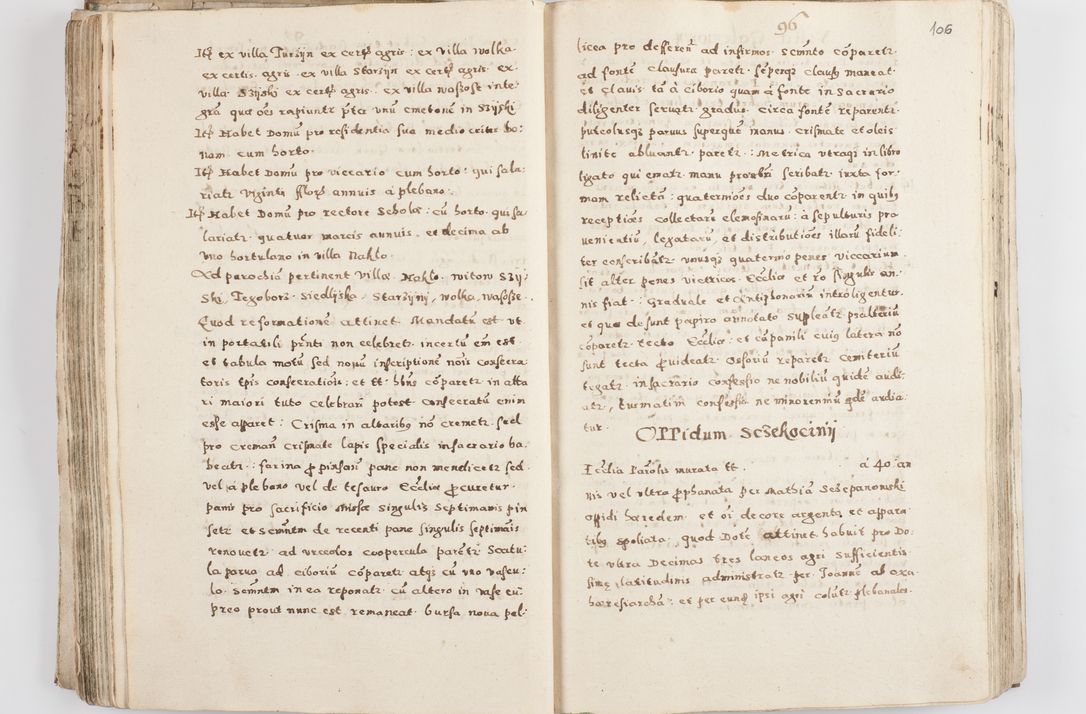 Itẽ ex villa Turzyn ex certis agris : ex villa Wolka
ex certis agris ex villa Starzyn ex certis agris ex
villa Szyski ex certis agris . ex villa Wassosse inte
gra quæ oẽs rapiuntr pr̃ta unũ cmetonẽ in Szyski
Itẽ Habet Domũ pro residentia sua mediocriter bo:
nam cum horto
Itẽ Habet Domũ pro viccario cum horto : qui sala:
riatr Viginti floris annuis a plebano .
Itẽ Habet Domũ pro rectore Scholæ : cũ horto . qui sa
lariatr quatuor marcis annuis et decima ab
uno hortulano in villa Naklo
Ad parochiã pertinent Villæ . Naklo . Witow Szy:
ski , Tegoborz . Siedlyska , Starzyny , Wolka , Wasosze .
Quod reformationẽ attinet Mandatũ est ut
in portatili pr̃nti non celebret . incertũ em̃ est
et tabula motũ sed nomẽ inscriptionẽ nõis consecra:
toris tp̃is consecrationis : et tt hñs cõparetr in alta
ri maiori tuto celebrari potest consecratũ enim
esse apparet : Crisma in altaribus nõ cremetr sed
pro cremanĩ Crismate lapis specialis in sacrario ha
beatr : farina p pinsanĩ pane non mendicetr sed
vel a plebono vel de tesauro Ecclĩæ pcuretur
panis pro sacrificio missæ singulis Septimanis pin
setr et Scmntm de recenti pane singulis septimãis
renouetr ad urceolos coopercula paretr Scatu:
la parua ad ciboriũ cõparetr atq; cũ uno vascu:
lo . Scmntm in ea reponatr cũ altero in vase cu:
preo prout nunc est remaneat bursa noua pel:
96
106
licea pro defferenĩ ad infirmos scmnto cõparetr
ad fontẽ clausura paretr sẽperq; clausus maneat
et clauis tã a ciborio quam a fonte in Sacrario
diligenter seruatr gradus circa fontẽ reparentr
puteolusq; paruus superquẽ manus crismate et oleis
linitæ abluantr paretr : Metrica utraq; in libro
ligato qui ematr manu prop̃ri scribatr iuxta for
mam relictã : quaterniões duo cõparentr in quibus
receptiões collectarũ elemosinarũ : a sepulturis pro
uenientiũ , legatarũ , et distributiões illarũ fideli:
ter conscribãtr unusq; quaterno penes viccarium
sit alter penes vietricos Ecclĩæ et ro singulis an
nis fiat : Graduale et Antiphonariũ introligentur
et quæ desunt papiro annotato suppleãtr psalteriũ
cõparetr tecto Ecclĩæ : et cãpanili cuius latera nõ
sunt tecta puideatr Ossoriũ reparetr Cemiteriũ
tegatr in sacrario confessio ne nobiliũ quidẽ audi:
atr , turmatim confessio ne minorenniũ qdẽ audia
tur .
Oppidum Sczekociny
Ecclĩa Parolis murata tt . a 40 an
nis vel ultro pphanata per Mathiã Sczepanowski
oppidi hæredem et oĩ decore argento et appara
tibus spoliata , quod Dotẽ attinet habuit pro Do:
te ultra Decimas tres laneos agri sufficientis
simæ latitudinis administratr per Joannẽ ab oxa
hæresiarchã : et per eund̃ ipsi agri colũtr plebanales .